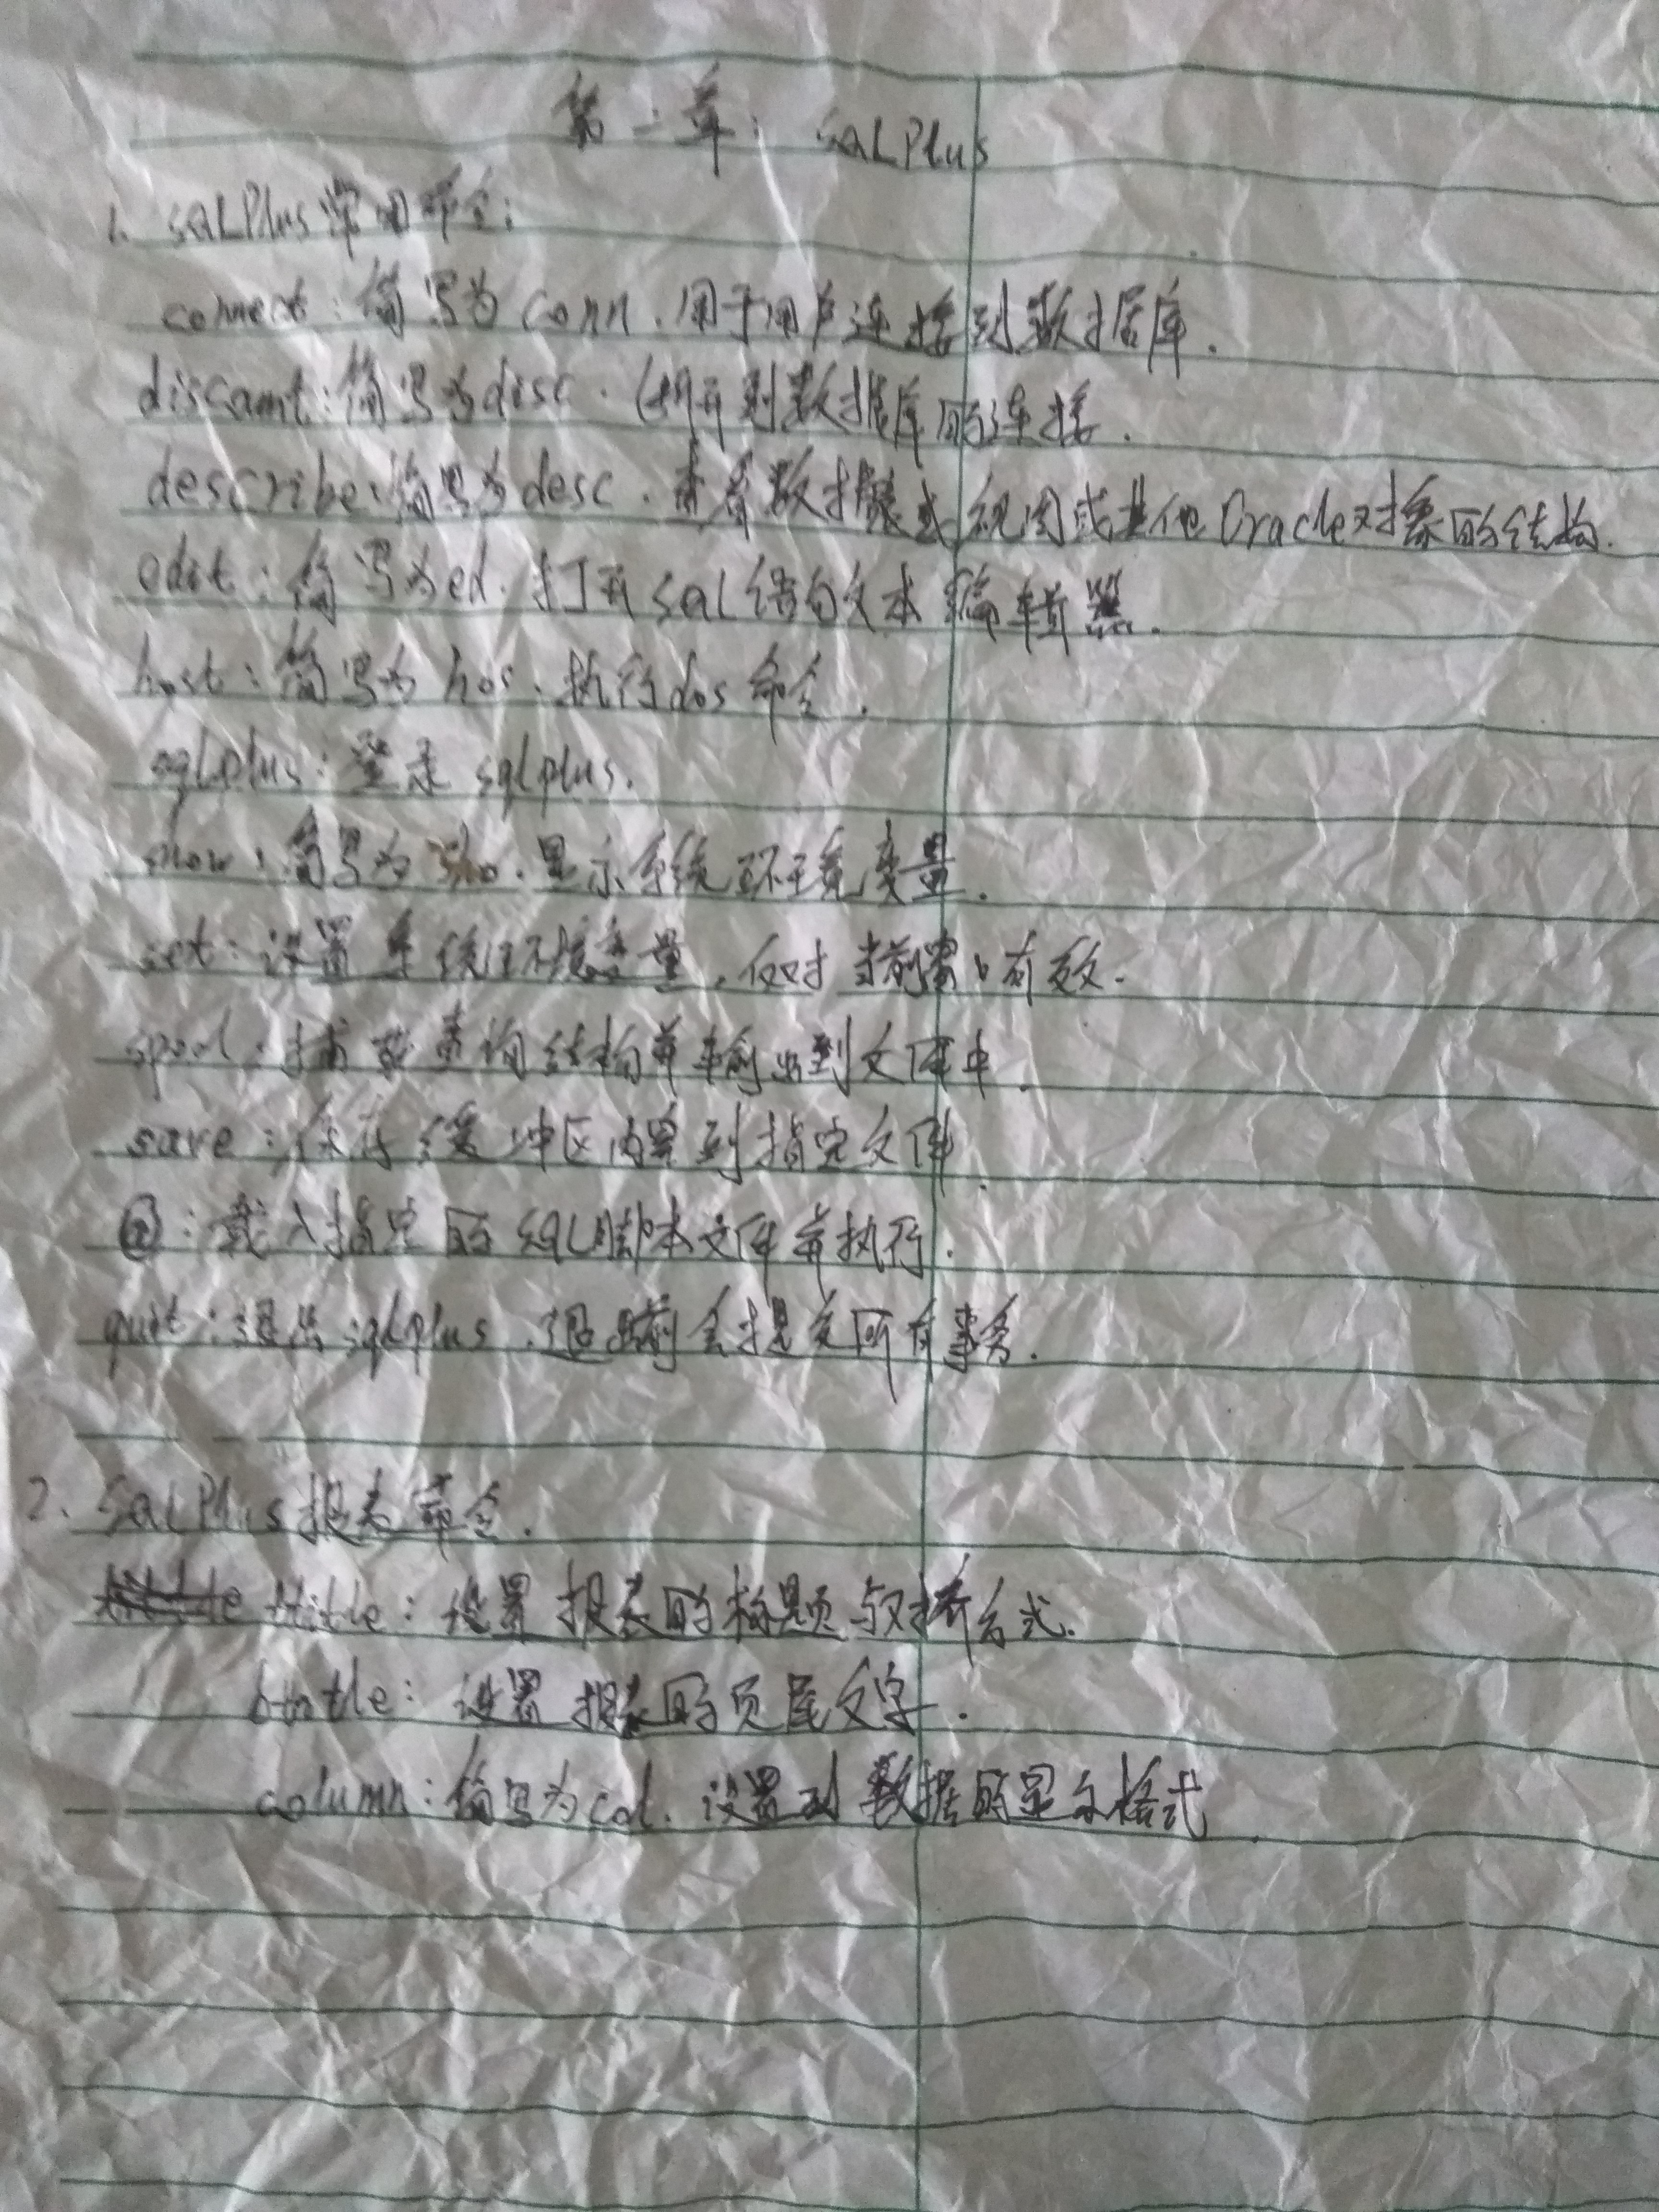 第二章：SQLPlus
1. SQLPlus常用命令：
connect：简写为conn．用于用户连接到数据库．
：简写为disc．切开到数据库的连接．
describe：简写为desc．查看数据表或视图或其他Oracle对象的结构．
edit：简写为ed．打开SQL语句文本编辑器．
host：简写为hos．执行dos命令．
sqlplus：登录sqlplus．
show：简写为sho．显示系统环境变量．
set：设置系统环境变量，仅对当前窗口有效．
spool：捕获查询结构并输出到文件中．
save：保存缓冲区内容到指定文件．
@：载入指定的SQL脚本文件并执行．
quit：退出sqlplus．退出前会提交所有事务．
2. SQLPlus报表命令．
ttitle：设置报表的标题与对齐方式．
btitle：设置报表的页尾文字．
column：简写为col．设置列数据的显示格式．